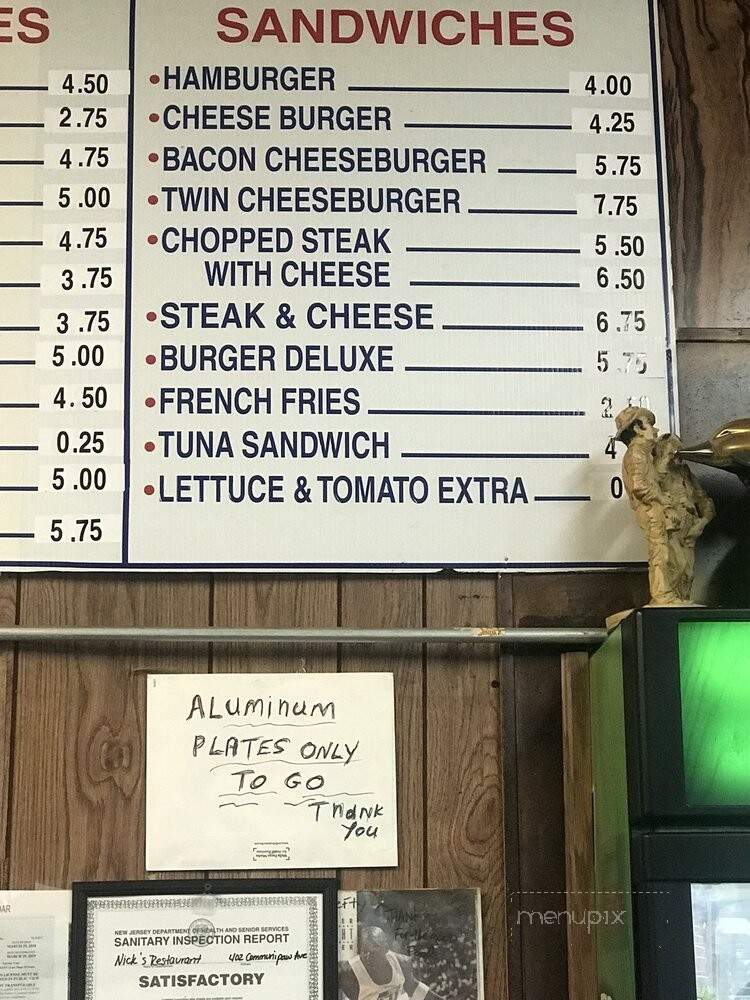 ES
4.50
2.75
4.75
5.00
4.75
3.75
3.75
5.00
4.50
0.25
5.00
5.75
SANDWICHES
•HAMBURGER 4.00
•CHEESE BURGER 4.25
•BACON CHEESEBURGER 5.75
•TWIN CHEESEBURGER 7.75
•CHOPPED STEAK 5.50
WITH CHEESE 6.50
•STEAK & CHEESE 6.75
•BURGER DELUXE 5.75
•FRENCH FRIES 2
•TUNA SANDWICH 4
•LETTUCE & TOMATO EXTRA 0
ALuminum
PLATES ONLY
TO GO
Thank
You
NEW JERSEY DEPARTMENT OF HEALTH AND SENIOR SERVICES
SANITARY INSPECTION REPORT
Nick's Restaurant 402 Communipaw Ave
SATISFACTORY
menupix